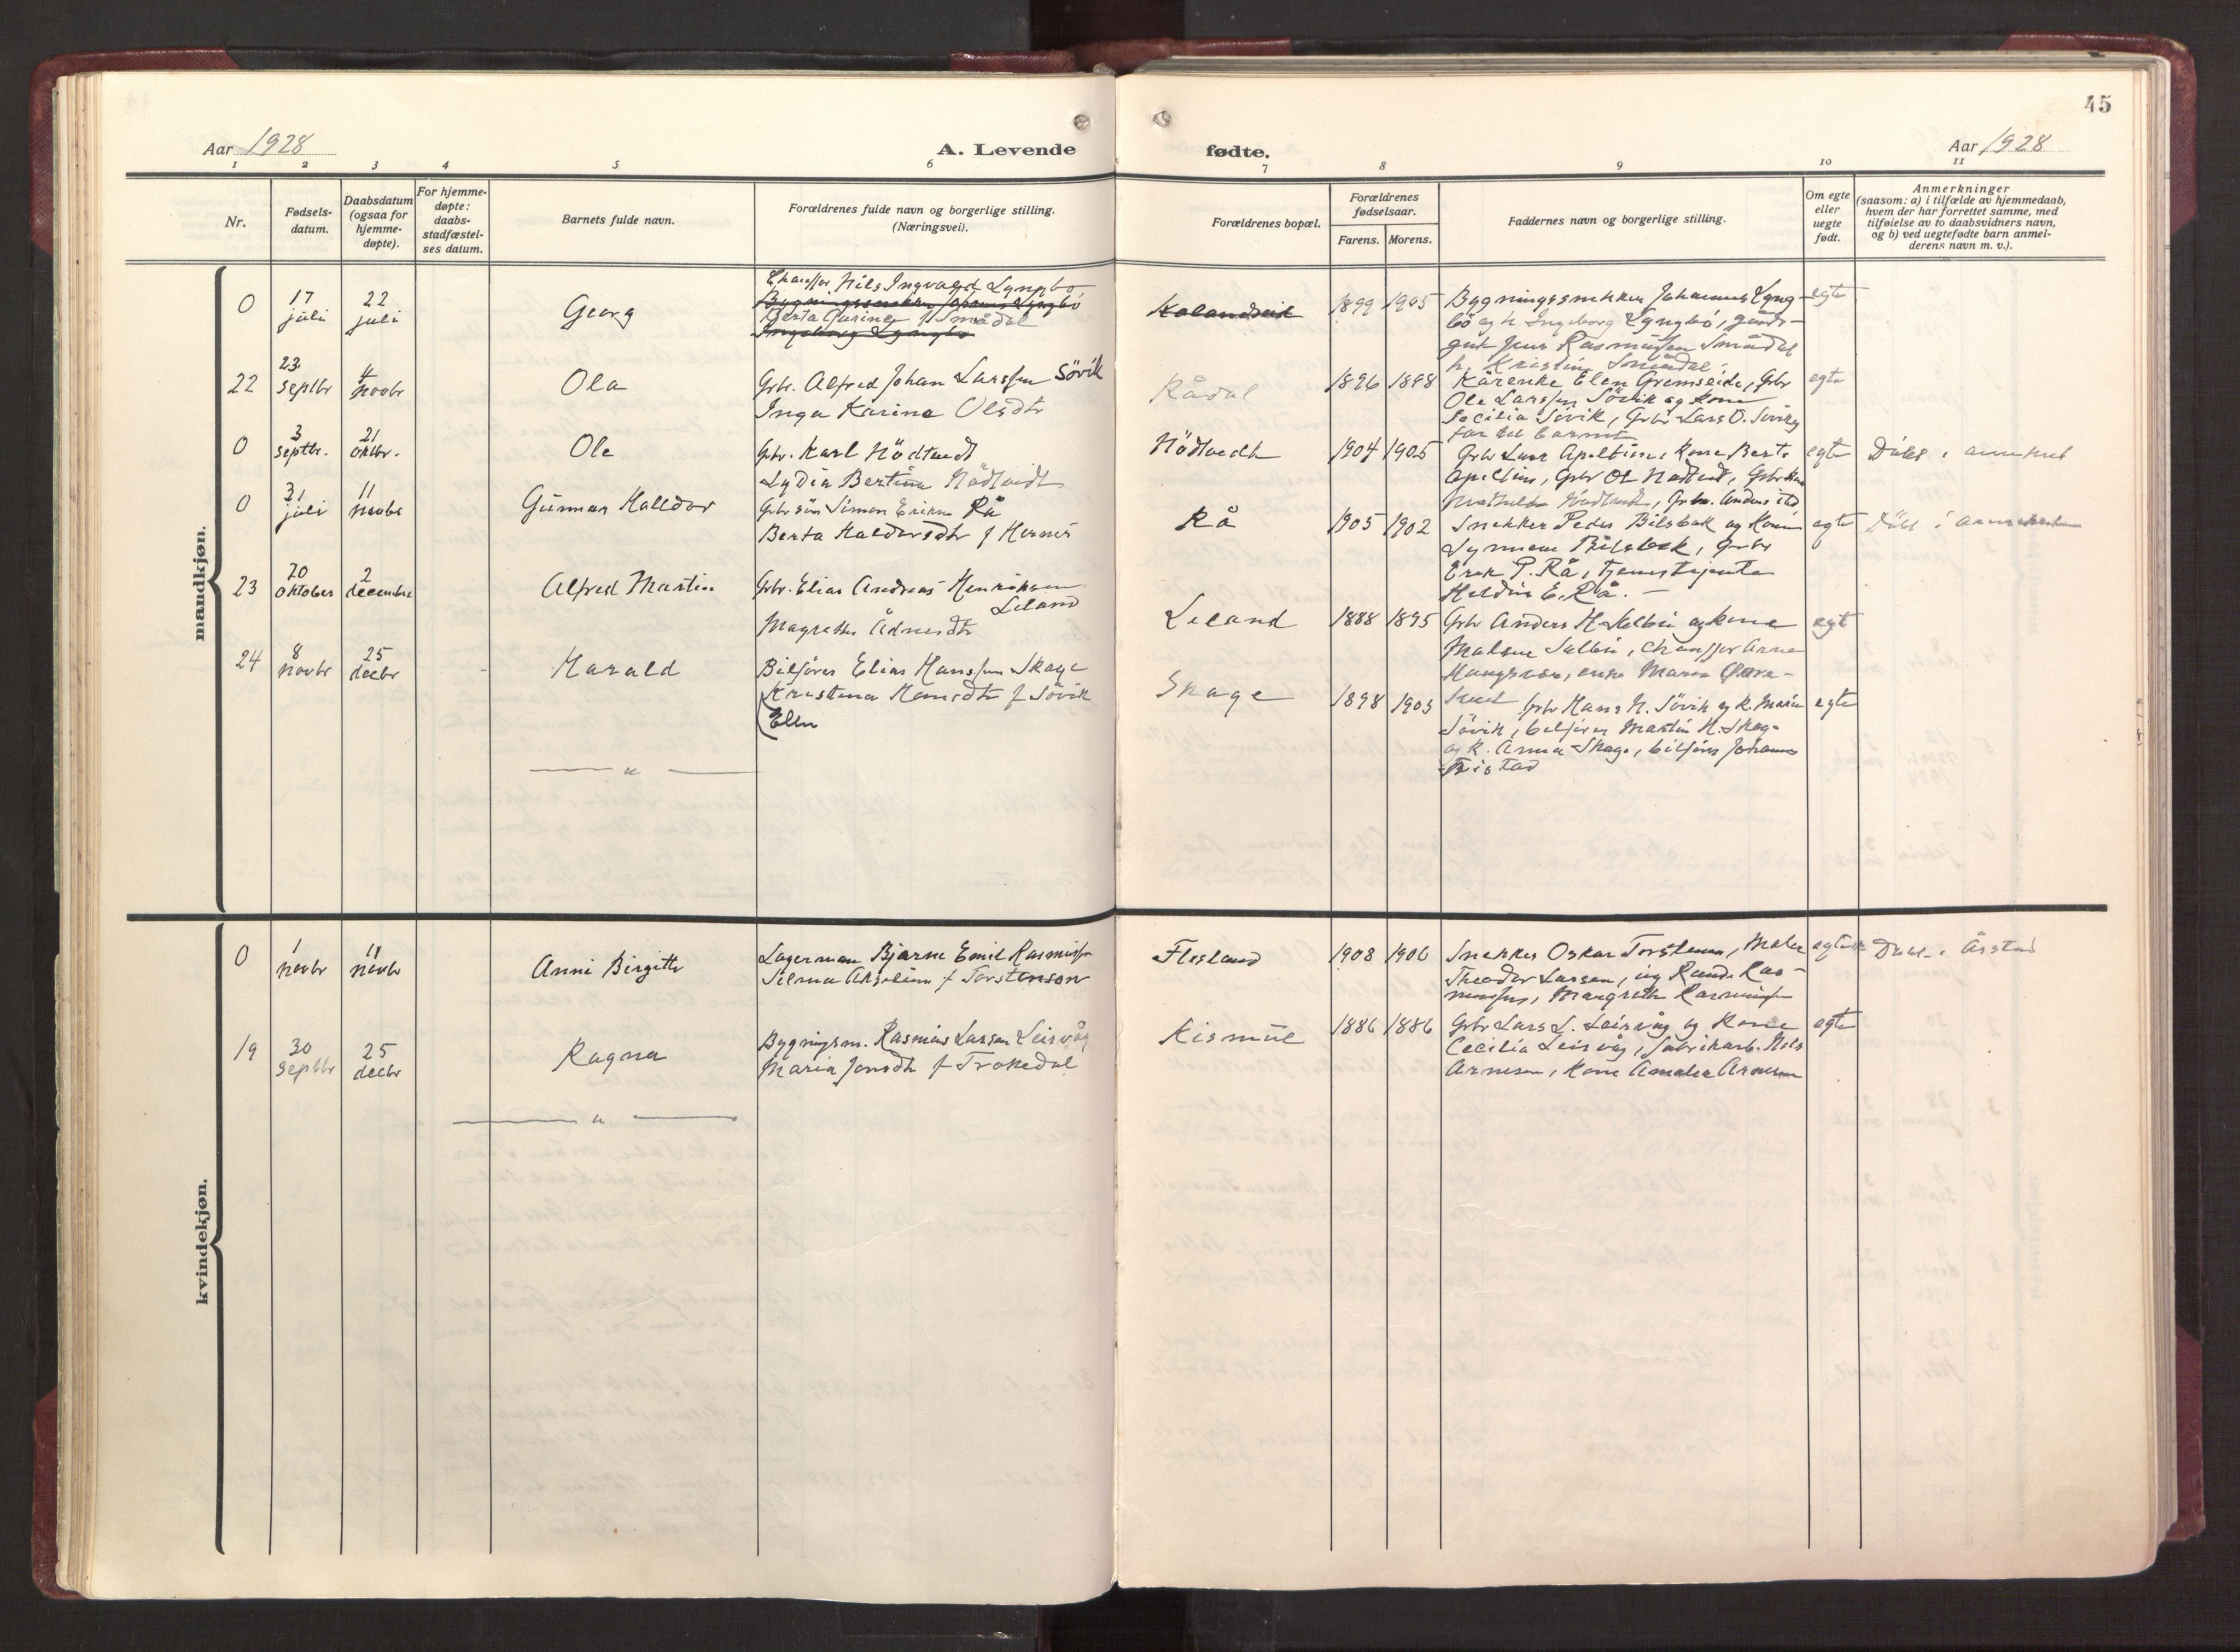 45
Aar 1928
A. Levende
fødte.
Aar 1928
1 2 3 4 5 6 7 8 9 10 11
Nr.
Fødsels-
datum.
Daabsdatum
(ogsaa for
hjemme-
døpte).
For hjemme-
døpte:
daabs-
stadfæstel-
ses datum.
Barnets fulde navn.
Forældrenes fulde navn og borgerlige stilling.
(Næringsvei).
Forældrenes bopæl.
Forældrenes
fødselsaar.
Farens. Morens.
Faddernes navn og borgerlige stilling.
Om egte
eller
uegte
født.
Anmerkninger
(saasom: a) i tilfælde av hjemmedaab,
hvem der har forrettet samme, med
tilføielse av to daabsvidners navn,
og b) ved uegtefødte barn anmel-
derens navn m. v.).
mandkjøn.
0
17
juli
22
juli
Georg
Nils Ingvald Lyngbø
Bygningssnekker Johannes Lyngbø
Berta Gurine f Smådal
Ingeborg Lyngbø
Kalandseid
1899 1905
Bygningssnekker Johannes Lyng-
bö og h Ingeborg Lyngbö, gårds-
gut Jens Rasmussen Smådal
h. Kristin Smådal.
egte
22
23
septbr
4
novbr
Ola
Gbr. Alfred Johan Larssen Sövik
Inga Karina Olsdtr
Rådal
1896 1898
Kårenke Elen Grimseide, Gbr
Ole Larssen Sövik og kone
Cecilia Sövik, Gbr Lars O. Sövik og
far til barnet
egte
0
3
septbr.
21
oktbr.
Ole
Gbr. Karl Nödtvedt
Lydia Bertine Nödtvedt
Nödtvedt
1904 1905
Gbr Lars Apeltun, kone Berte
Apeltun, Gbr Ol Nödtvedt, Gbr
egte
Döbt i
0
31
juli
11
novbr
Gunnar Halldor
Gbr sön Simon Eriksen Rå
Berta Haldorsdtr f Hernes
Rå
1905 1902
Snekker Peder Bilsbak og kone
Bilsbak, Gbr
Erik P. Rå, tjenestejente
Haldis E. Rå. —
egte
Döbt i
23
20
oktober
2
december
Alfred Martin
Gbr. Elias Andreas Henriksen
Liland
Magrethe Ådnesdtr
Leland
1888 1895
Gbr Anders H. og kone
chauffør Arne
enke Maria
egte
24
8
novbr
25
decbr
Harald
Bilförer Elias Hanssen Skage
Kristina Hansdtr f Sövik
(Ellen
Skage
1898 1903
Gbr Hans N. Sövik og k. Marie
Sövik, bilförer Martin H. Skage
og k. Anna Skage, bilförer Johannes
egte
— " —
kvindekjøn.
0
1
novbr
11
novbr
Anni Birgitte
Lagerman Bjarne Emil Rasmussen
f Torstenson
Flesland
1908 1906
Snekker Oskar Torstensen, Maler
Theodor Larsen, Ras-
mussen, Margrethe Rasmussen
egte
Döbt i Årstad
19
30
septbr
25
decbr
Ragna
Bygningsm. Rasmus Larsen Leirvåg
Maria Jonsdtr f Trokedal
Kismul
1886 1886
Gbr Lars L. Leirvåg og kone
Cecilia Leirvåg, fabrikarb. Nils
Arnesen, kone Amalia Arnesen
egte
— " —